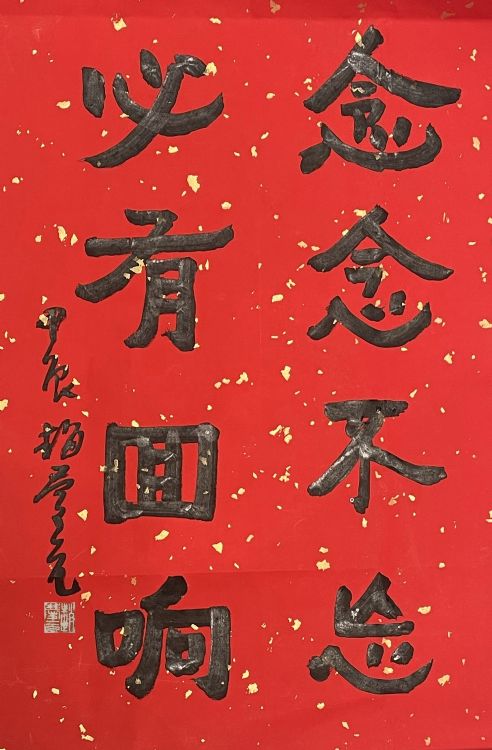 念念不忘
必有回响
甲辰